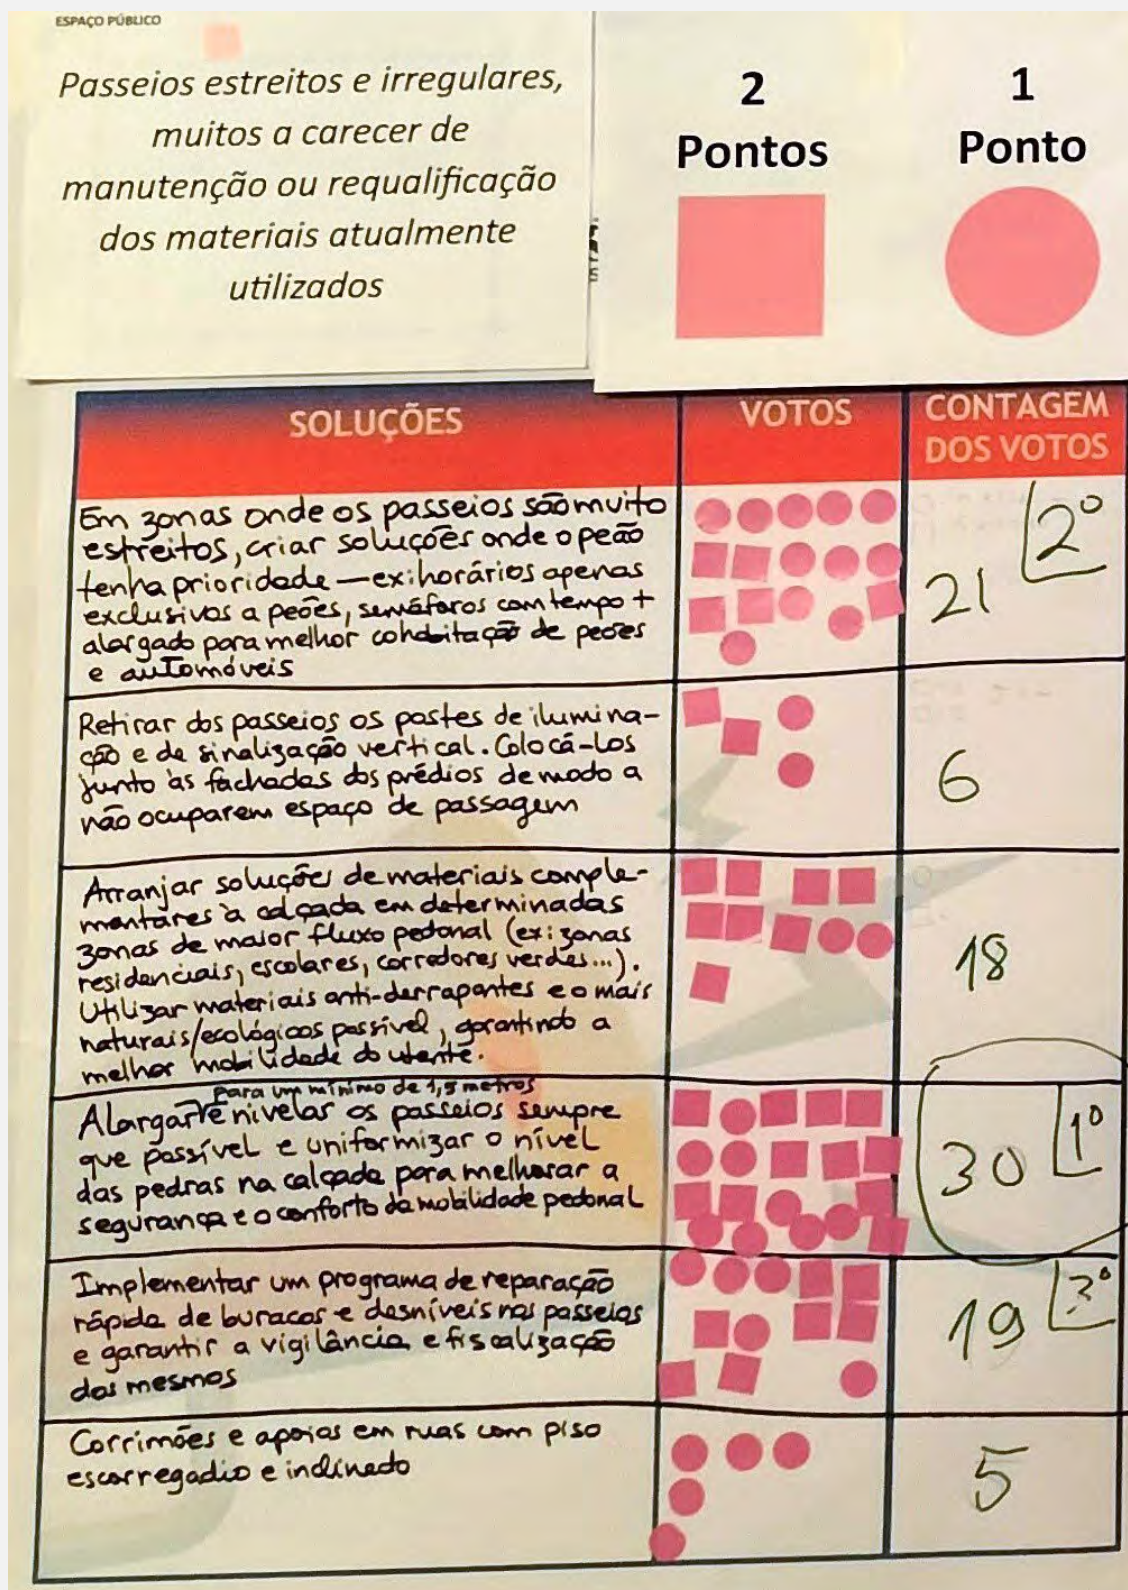 ESPAÇO PÚBLICO
Passeios estreitos e irregulares,
muitos a carecer de
manutenção ou requalificação
dos materiais atualmente
utilizados
2
Pontos
1
Ponto
SOLUÇÕES
VOTOS
CONTAGEM
DOS VOTOS
Em zonas onde os passeios são muito
estreitos, criar soluções onde o peão
tenha prioridade — ex: horários apenas
exclusivos a peões, semáforos com tempo +
alargado para melhor cohabitação de peões
e automóveis
21
2º
Retirar dos passeios os postes de ilumina-
ção e de sinalização vertical. Colocá-los
junto às fachadas dos prédios de modo a
não ocuparem espaço de passagem
6
Arranjar soluções de materiais comple-
mentares à calçada em determinadas
zonas de maior fluxo pedonal (ex: zonas
residenciais, escolares, corredores verdes...).
Utilizar materiais anti-derrapantes e o mais
naturais/ecológicos possível, garantindo a
melhor mobilidade do utente.
18
para um mínimo de 1,5 metros
Alargar e nivelar os passeios sempre
que possível e uniformizar o nível
das pedras na calçada para melhorar a
segurança e o conforto da mobilidade pedonal
30
1º
Implementar um programa de reparação
rápida de buracos e desníveis nos passeios
e garantir a vigilância e fiscalização
dos mesmos
19
3º
Corrimões e apoios em ruas com piso
escorregadio e inclinado
5